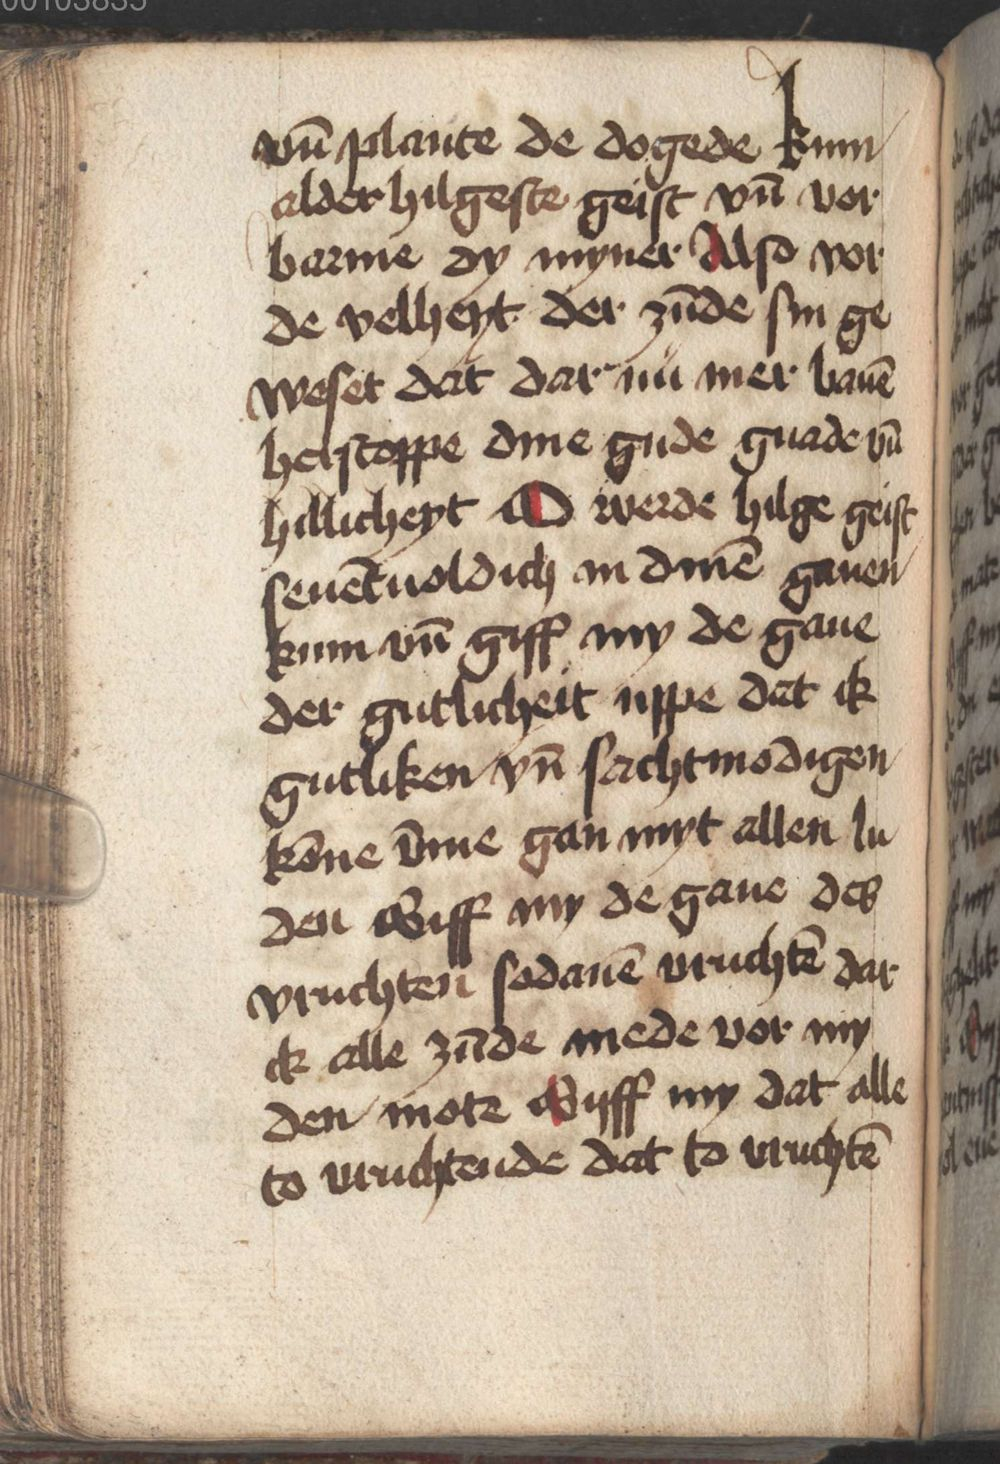 00103835
vn̄ plante de dogede kum
alder hilgeste geist vn̄ vor
barme dy myner Also vor
de velheyt der zūde sin ge
weset dat dar nü mer bauē
herstoppe dine gude gnade vn̄
hillicheyt O werde hilge geist
seuēt uoldich in dinē gauen
kum vn̄ giff my de gaue
der gutlicheit uppe dat ik
gutliken vn̄ sachtmodigen
kōne v̄me gan myt allen lu
den Giff my de gaue des
vruchten sodanē vruchtē dar
ik alle zūde mede vor my
den mote Giff my dat alle
to vruchtende dat to vruchtē